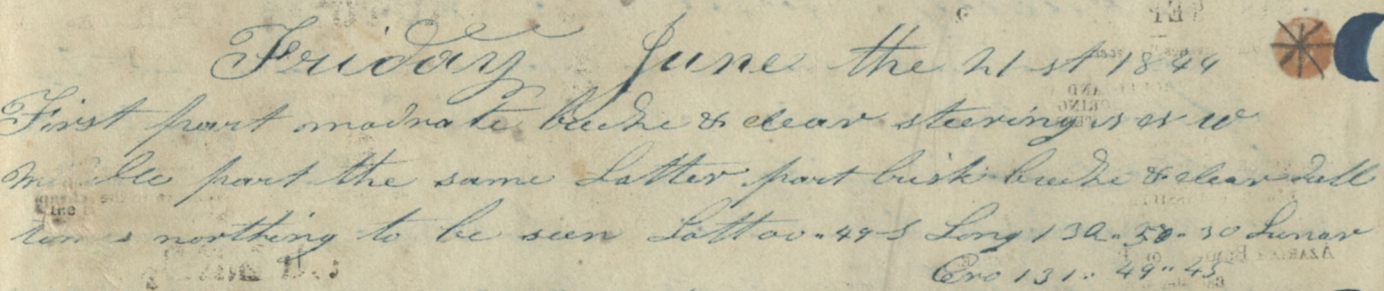 Friday June the 21st 1844
First part modrate breeze & clear steering s w
Middle part the same Latter part brisk breeze & clear dull
times northing to be seen Latt 00"49 S Long 132"50"30 Lunar
Cro 131"49"45